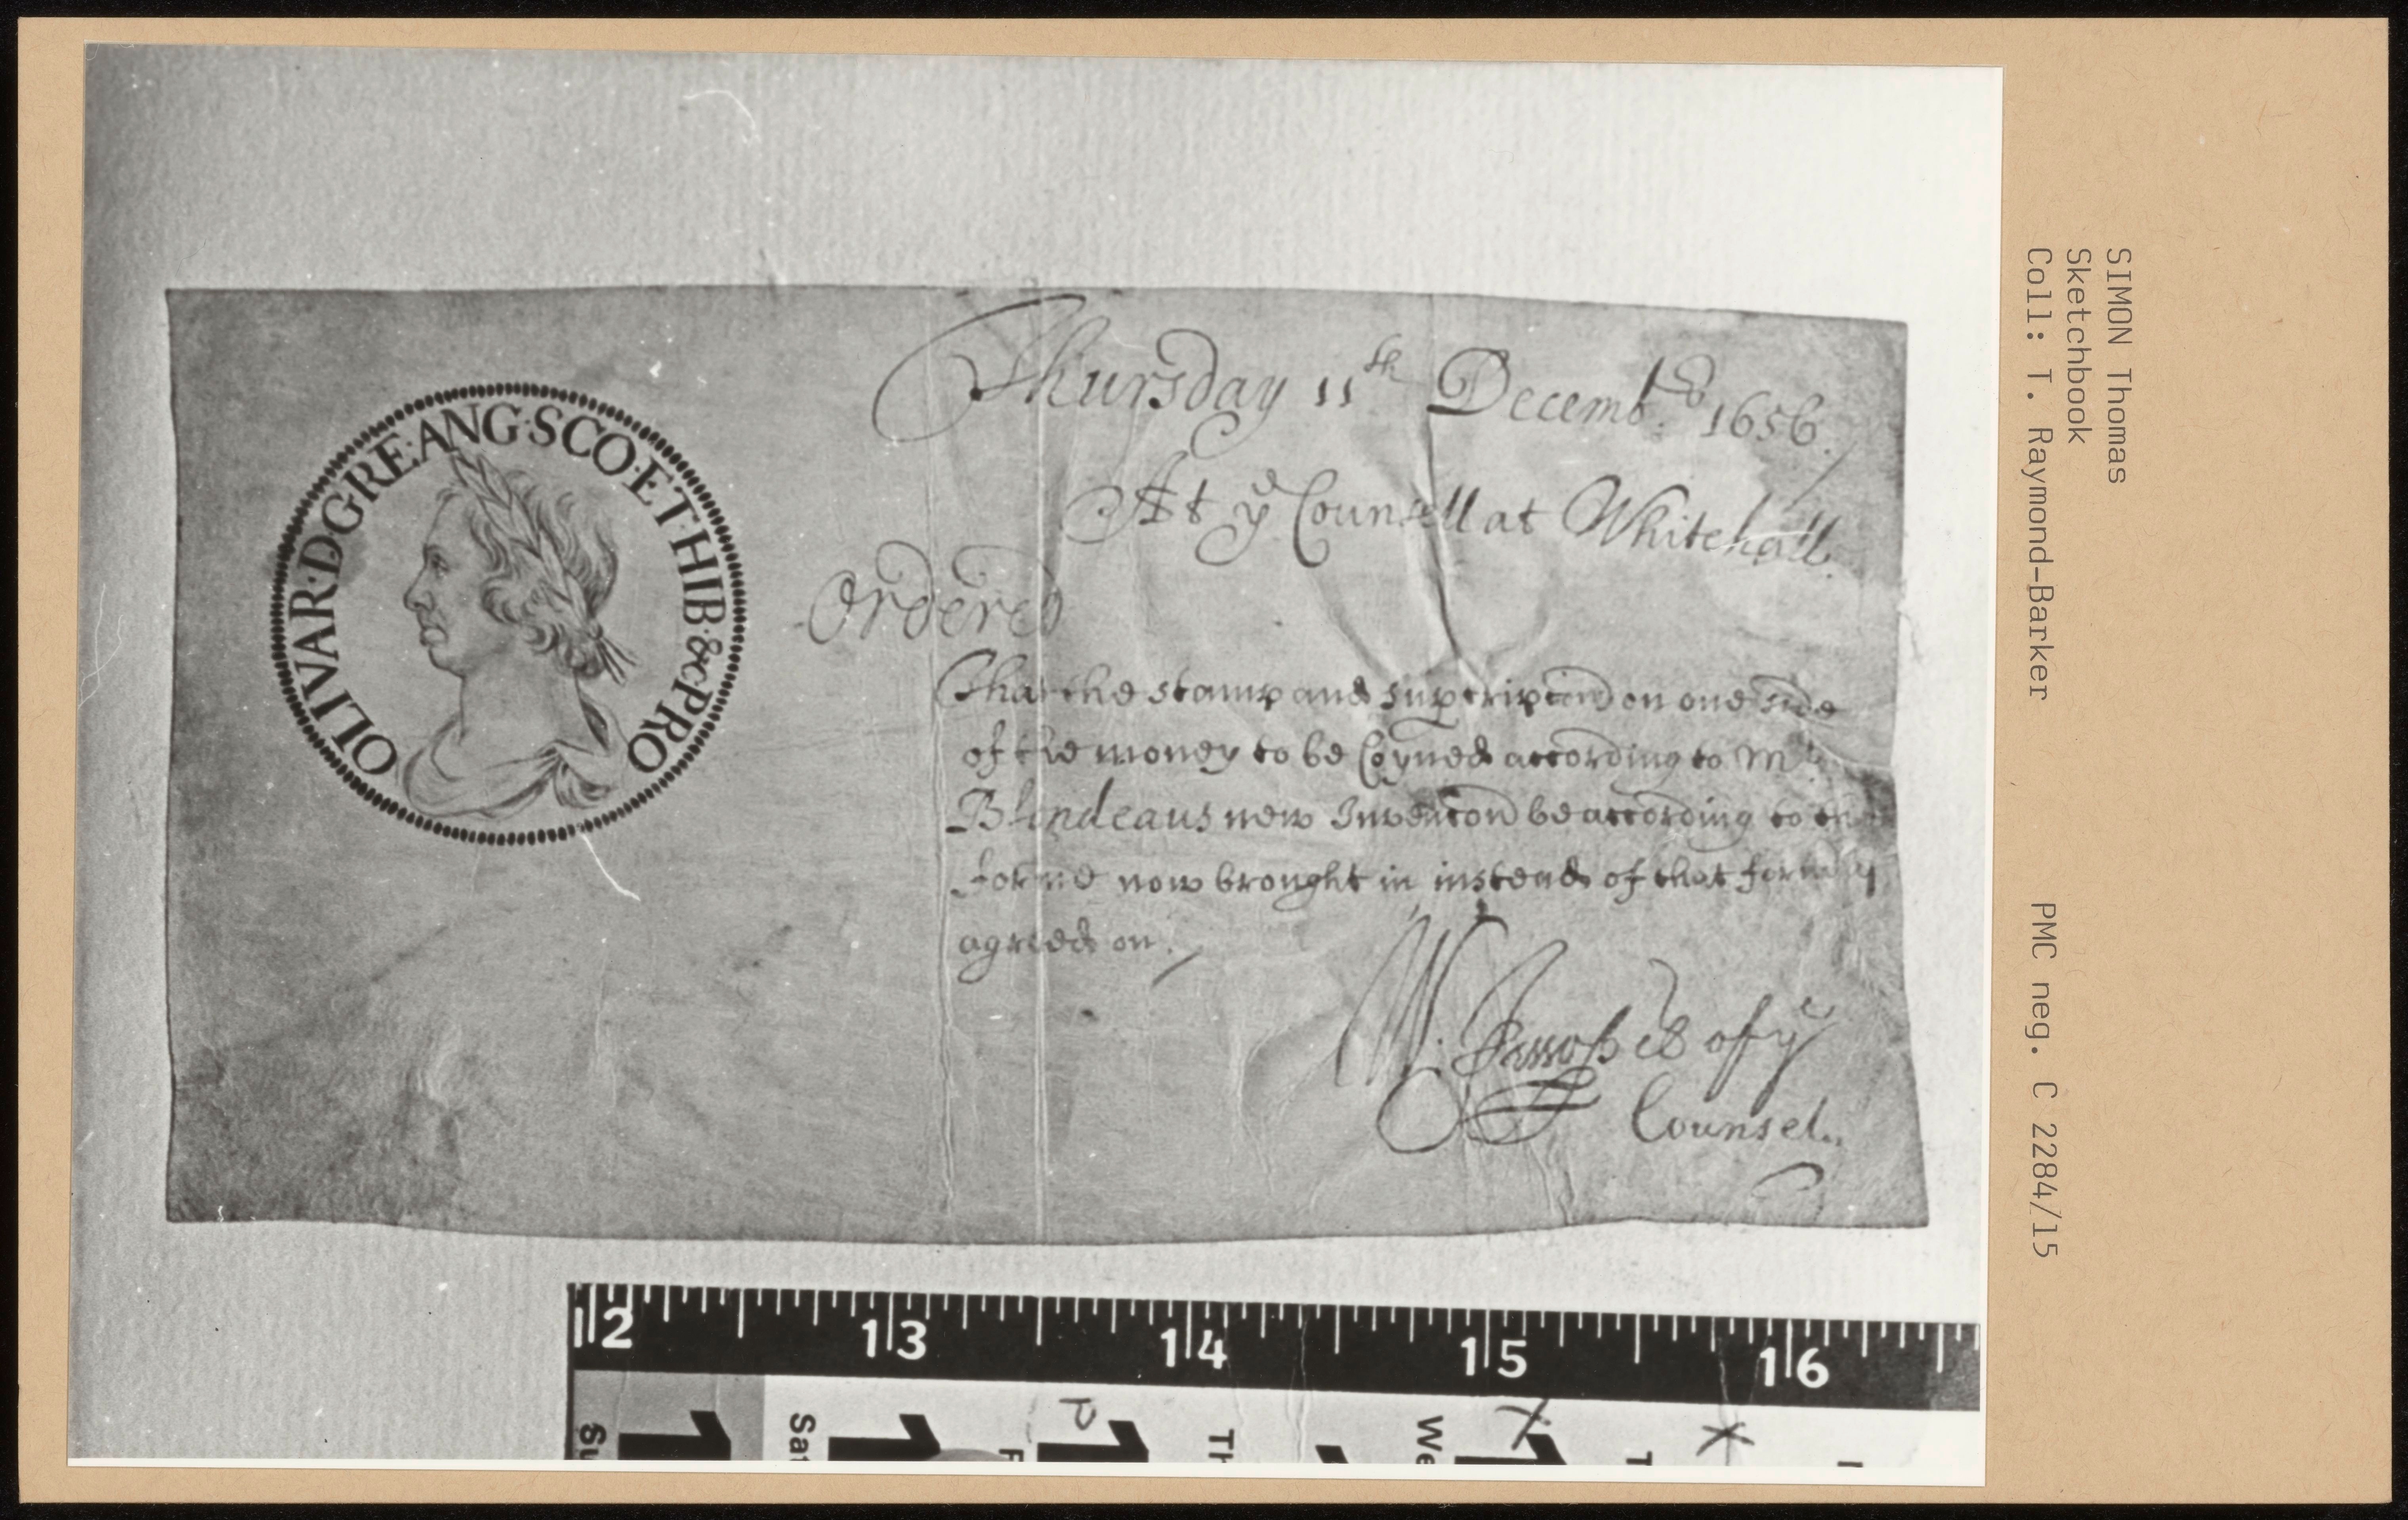 OLIVAR·D·G·RE·ANG·SCO·ET·HIB·&c PRO
Thursday 11th Decembr 1656.
At ye Counsell at Whitehall.
Ordered
That the stamp and superscripcion on one side
of the money to be Coyned according to Mr
Blondeaus new Invencon be according to the
forme now brought in instead of that formerly
agreed on.
W. Jessop Cl of ye
Counsel.
12 13 14 15 16
Su Sat F Th We T
SIMON Thomas
Sketchbook
Coll: T. Raymond-Barker PMC neg. C 2284/15